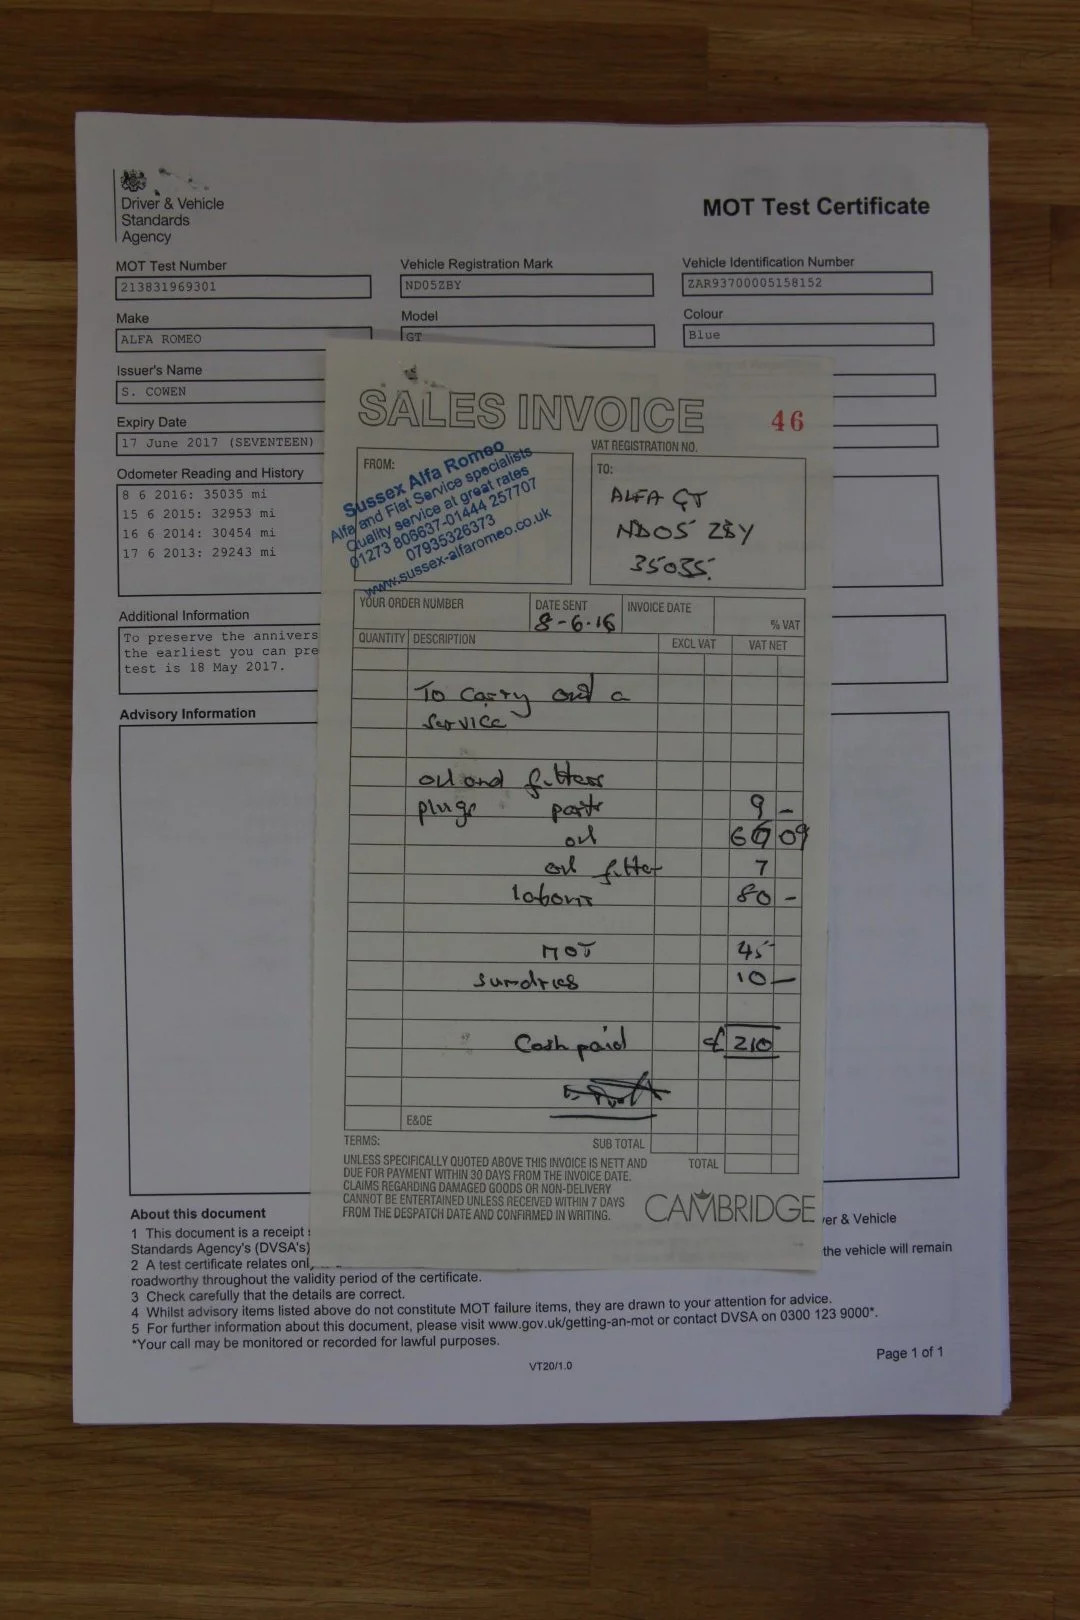 Driver & Vehicle
Standards
Agency
MOT Test Certificate
MOT Test Number
213831969301
Vehicle Registration Mark
ND05ZBY
Vehicle Identification Number
ZAR93700005158152
Make
ALFA ROMEO
Model
GT
Colour
Blue
Issuer's Name
S. COWEN
Expiry Date
17 June 2017 (SEVENTEEN)
Odometer Reading and History
8 6 2016: 35035 mi
15 6 2015: 32953 mi
16 6 2014: 30454 mi
17 6 2013: 29243 mi
Additional Information
To preserve the annivers
the earliest you can pre
test is 18 May 2017.
Advisory Information
SALES INVOICE
46
VAT REGISTRATION NO.
FROM:
Sussex Alfa Romeo
Alfa and Fiat Service specialists
Quality service at great rates
01273 806637-01444 257707
07935326373
www.sussex-alfaromeo.co.uk
TO:
ALFA GT
ND05 ZBY
35035.
YOUR ORDER NUMBER
DATE SENT
8-6.16
INVOICE DATE
% VAT
QUANTITY DESCRIPTION EXCL VAT VAT NET
To carry out a
service
oil and filters
plugs parts 9 -
oil 09
oil filter 7
labour 80 -
MOT 45
sundries 10 -
Cash paid £ 210
E&OE
TERMS:
SUB TOTAL
UNLESS SPECIFICALLY QUOTED ABOVE THIS INVOICE IS NETT AND
DUE FOR PAYMENT WITHIN 30 DAYS FROM THE INVOICE DATE.
CLAIMS REGARDING DAMAGED GOODS OR NON-DELIVERY
CANNOT BE ENTERTAINED UNLESS RECEIVED WITHIN 7 DAYS
FROM THE DESPATCH DATE AND CONFIRMED IN WRITING.
TOTAL
CAMBRIDGE
About this document
1 This document is a receipt er & Vehicle
Standards Agency's (DVSA's) the vehicle will remain
2 A test certificate relates onl
roadworthy throughout the validity period of the certificate.
3 Check carefully that the details are correct.
4 Whilst advisory items listed above do not constitute MOT failure items, they are drawn to your attention for advice.
5 For further information about this document, please visit www.gov.uk/getting-an-mot or contact DVSA on 0300 123 9000*.
*Your call may be monitored or recorded for lawful purposes.
VT20/1.0
Page 1 of 1